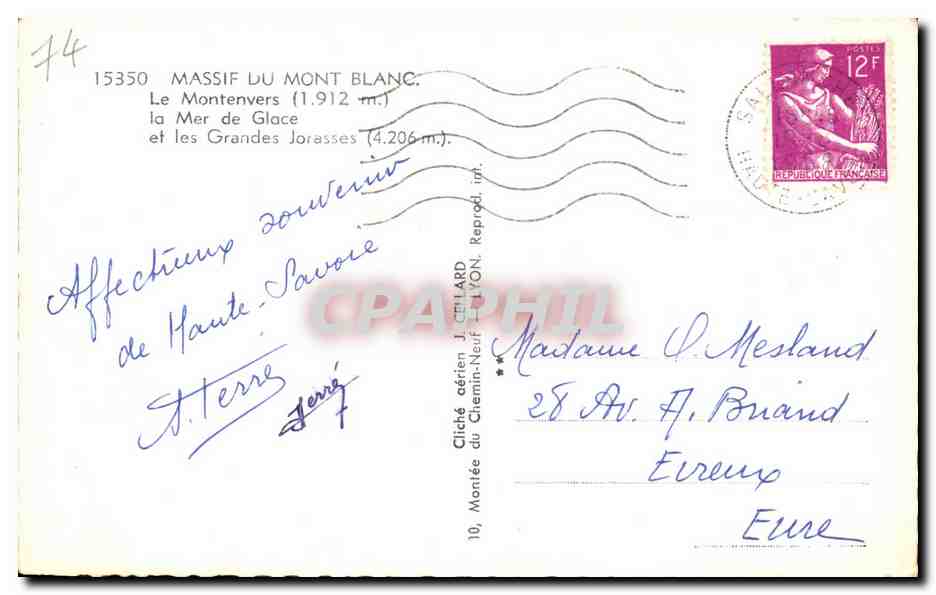 74
15350 MASSIF DU MONT BLANC.
Le Montenvers (1.912 m.)
la Mer de Glace
et les Grandes Jorasses (4.206 m.).
Affectueux souvenir
de Haute-Savoie
A. Ferré
Ferré
Cliché aérien J. CELLARD
10, Montée du Chemin-Neuf - LYON. Reprod. int.
**
POSTES
12F
REPUBLIQUE FRANÇAISE
Madame O. Mesland
28 Av. A. Briand
Evreux
Eure
CPAPHIL